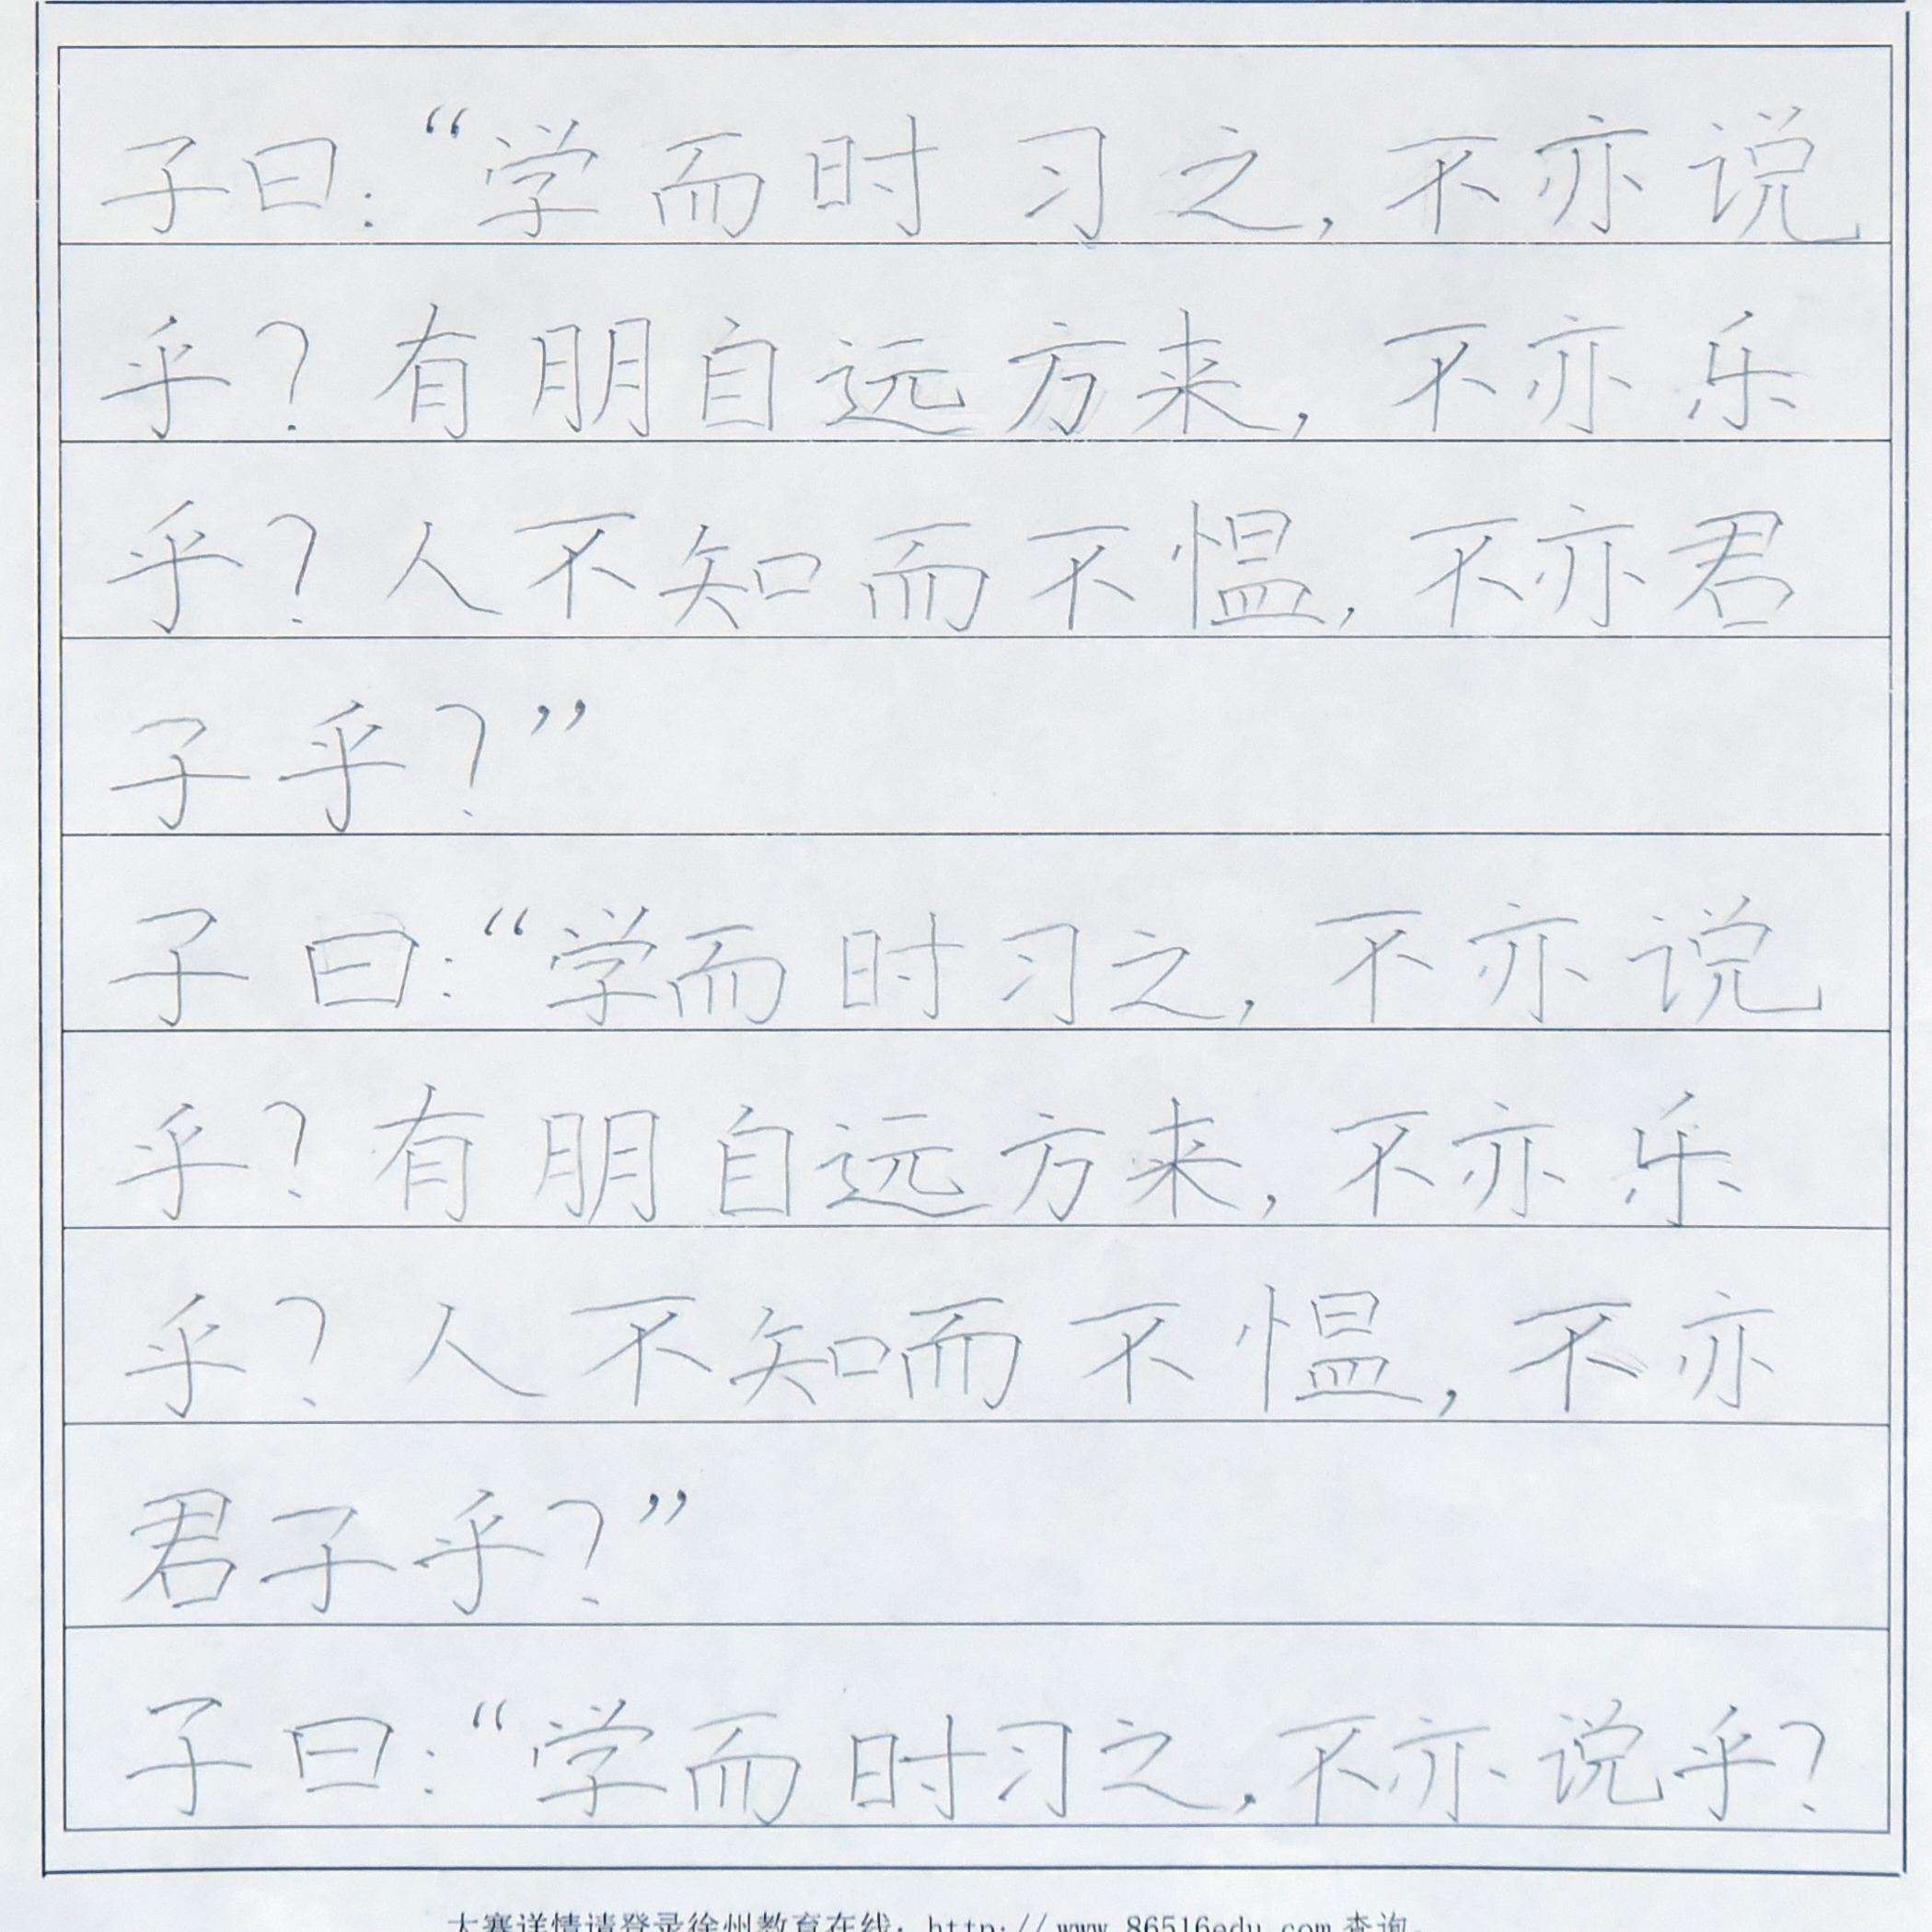 子曰：“学而时习之，不亦说
乎？有朋自远方来，不亦乐
乎？人不知而不愠，不亦君
子乎？”
子曰：“学而时习之，不亦说
乎？有朋自远方来，不亦乐
乎？人不知而不愠，不亦
君子乎？”
子曰：“学而时习之，不亦说乎？
大赛详情请登录徐州教育在线：http://www.86516edu.com查询。